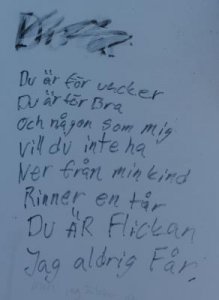 Du är för vacker
Du är för Bra
Och någon som mig
vill du inte ha
Ner från min kind
Rinner en tår
Du ÄR Flickan
Jag aldrig Får